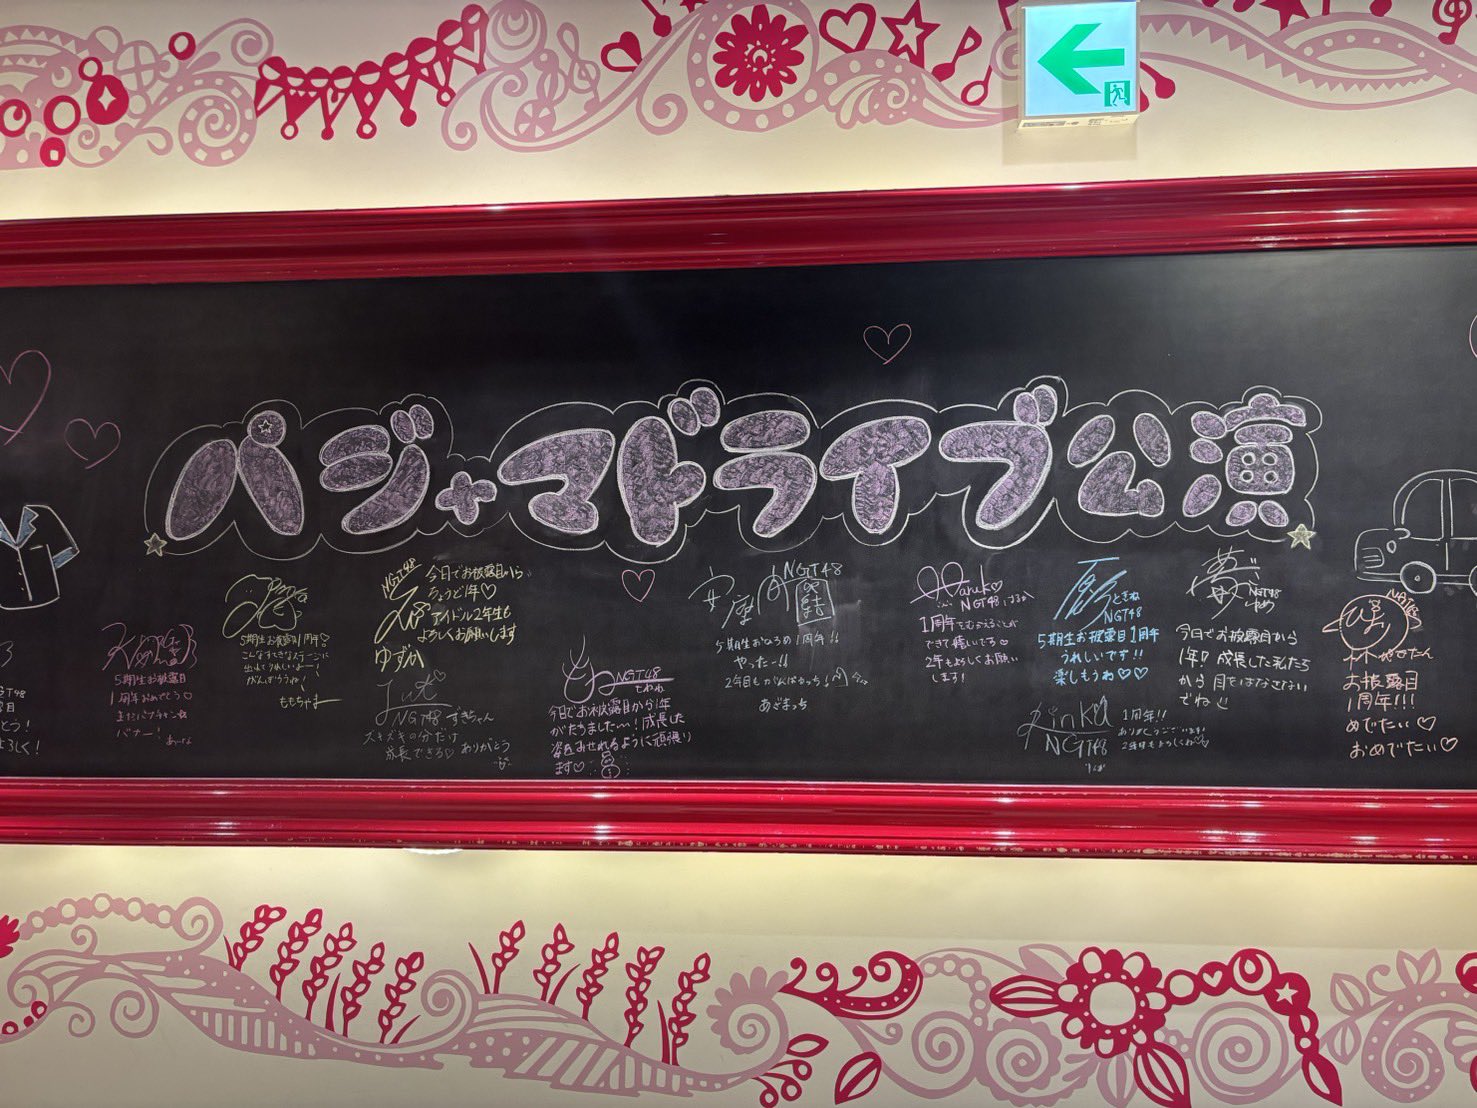 パジャマドライブ公演
5期生お披露目
1周年おめでとう♡
5期生お披露目1周年♡
こんなすてきなステージに
出れてうれしいよー!
がんばろうね!
ももちゃま
NGT48
今日でお披露目から
ちょうど1年♡
アイドル2年生も
よろしくお願いします
ゆずか
NGT48 ずきちゃん
スキズキの分だけ
成長できろ♡ ありがとう
NGT48
今日でお披露目から1年
がたちました〜!成長した
姿をみせれるように頑張り
ます♡
安座間
NGT48
5期生おひろめ1周年!!
やったー!!
2年目もがんばるっち!
あざまっち
Haruko
NGT48
1周年をむかえることが
できて嬉しいです♡
2年もよろしくお願い
します!
ときね
NGT48
5期生お披露目1周年
うれしいです!!
楽しもうね♡♡
Rinka
NGT48
1周年!!
ありがとうございます
2年目もよろしくね♡
夢
NGT48
ゆめ
今日でお披露目から
1年!成長した私たち
から目をはなさない
でね
NGT48
お披露目
1周年!!!
めでたい♡
おめでたい♡